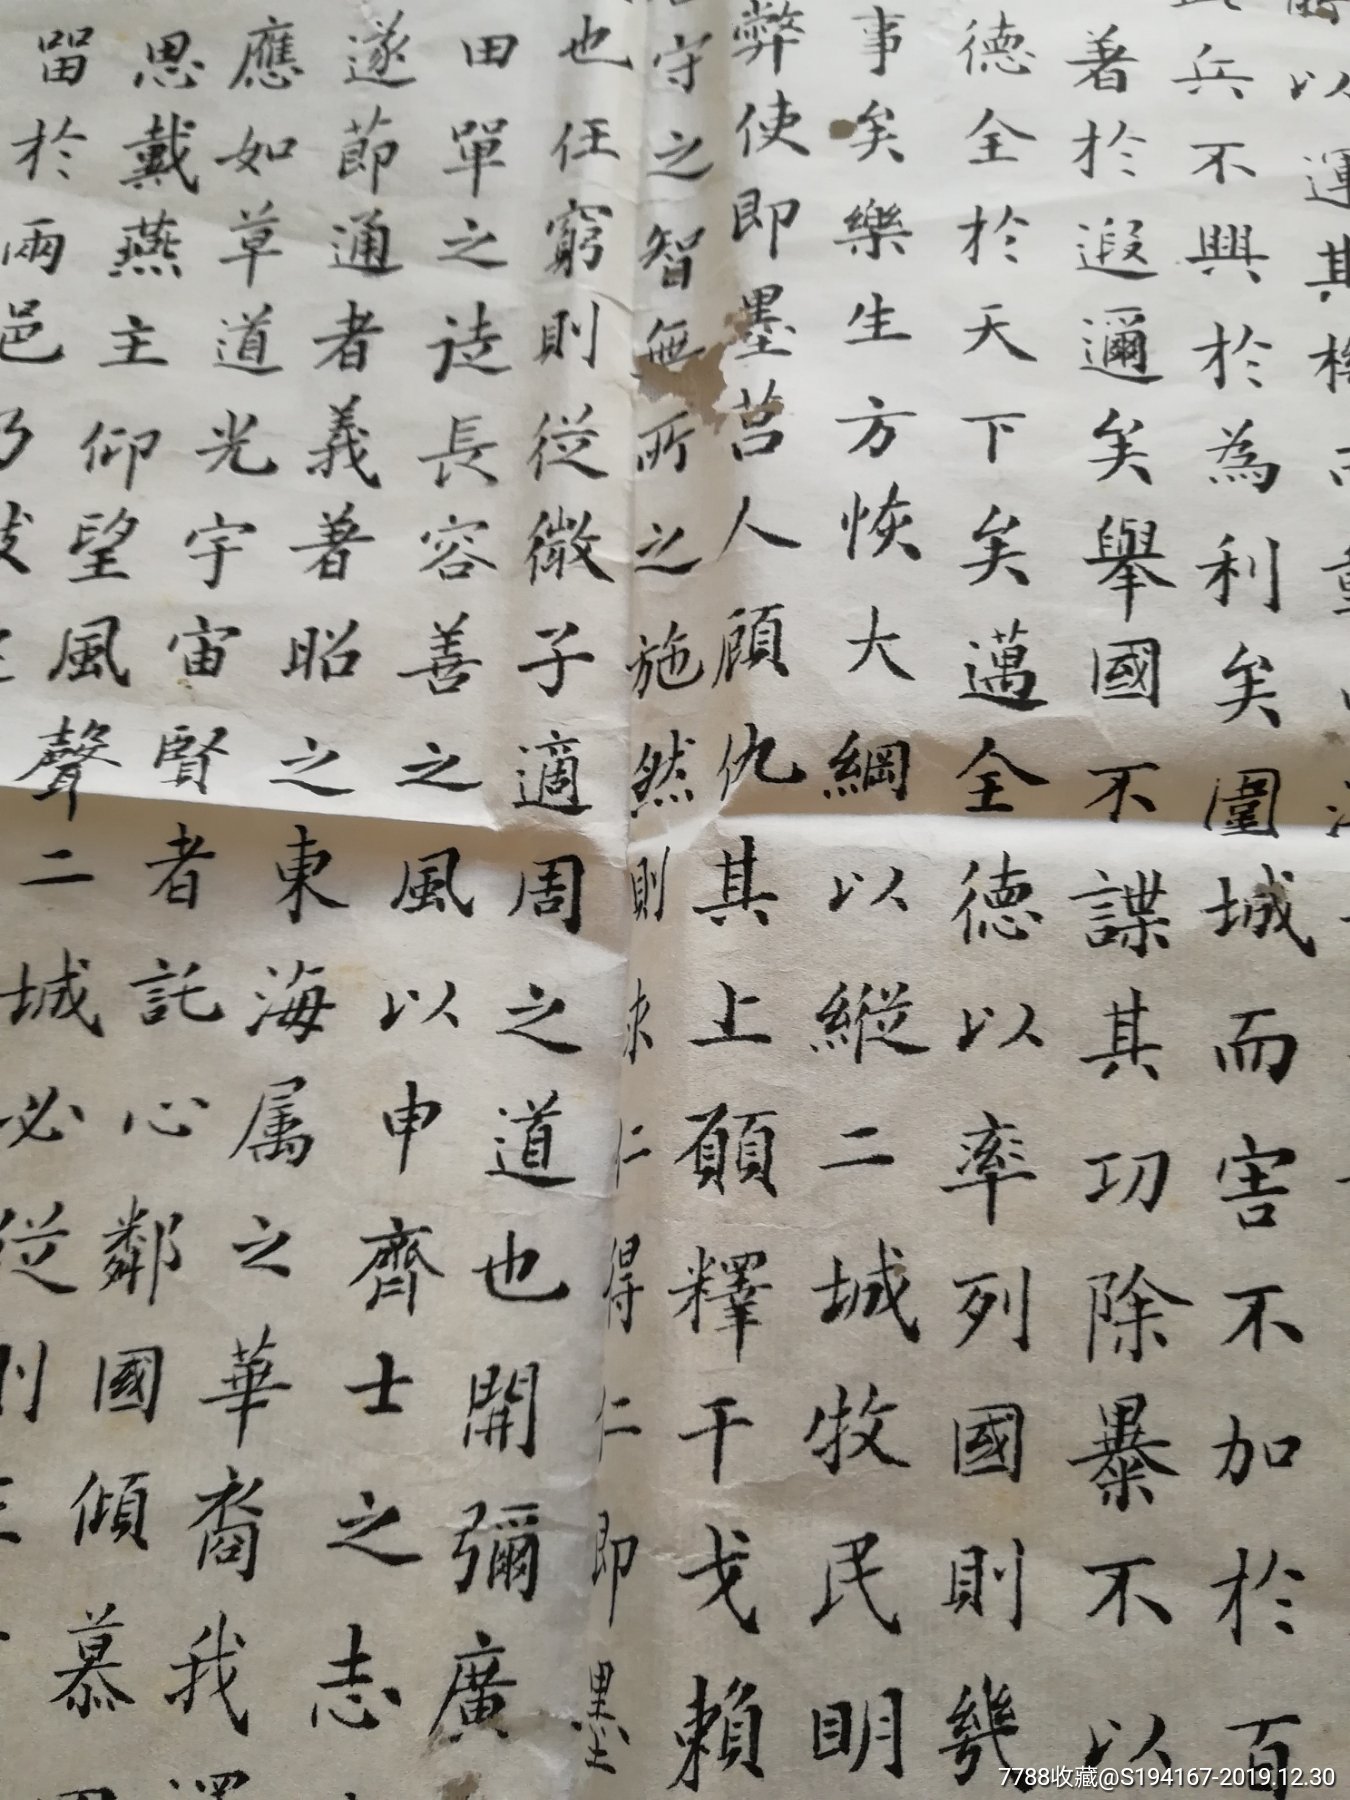 以運其機而動
兵不興於為利矣圍城而害不加於百
著於遐邇矣舉國不謀其功除暴不以
德全於天下矣邁全德以率列國則幾
事矣樂生方恢大綱以縱二城牧民明
弊使即墨莒人顧仇其上願釋干戈賴
守之智無所之施然則求仁得仁即墨
也任窮則從微子適周之道也開彌廣
田單之徒長容善之風以申齊士之志
遂節通者義著昭之東海属之華裔我
應如草道光宇宙賢者託心鄰國傾慕
思戴燕主仰望風聲二城必從則王
留於兩邑乃
7788收藏@S194167-2019.12.30